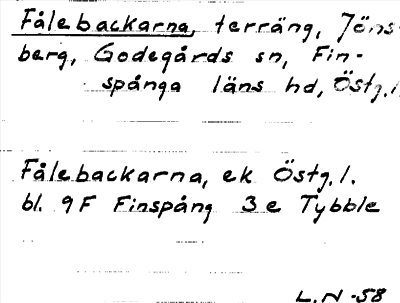 Fålebackarna, terräng, Jöns-
berg, Godegårds sn, Fin-
spånga läns hd, Östg.l.
Fålebackarna, ek Östg.l.
bl. 9F Finspång 3e Tybble
L.N -58